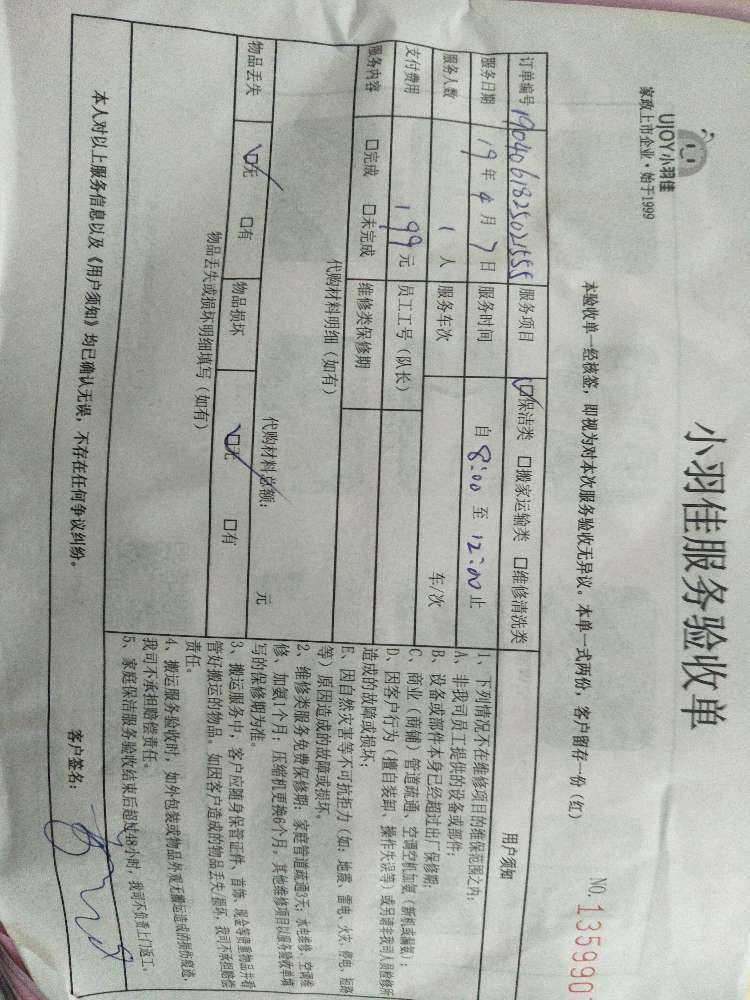 UJOY小羽佳
家政上市企业·始于1999
小羽佳服务验收单
NO. 135990
本验收单一经核签，即视为对本次服务验收无异议。本单一式两份，客户留存一份（红）
订单编号 服务项目 ☑保洁类 □搬家运输类 □维修清洗类
服务日期 19年4月7日 服务时间 自8:00至12:00止
服务人数 1人 服务车次 车/次
支付费用 199元 员工工号（队长）
服务内容 □完成 □未完成 维修类保修期
代购材料明细（如有）
代购材料总额： 元
物品丢失 ☑无 □有 物品损坏 ☑无 □有
物品丢失或损坏明细填写（如有）
用户须知
1、下列情况不在维修项目的维保范围之内：
A、非我司员工提供的设备或部件；
B、设备或部件本身已经超过出厂保修期；
C、商业（商铺）管道疏通、空调空机加氨（新机或漏氨）；
D、因客户行为（擅自装卸、操作失误等）或另请非我司人员检修所
造成的故障或损坏；
E、因自然灾害等不可抗拒力（如：地震、雷电、火灾、停电、短路
等）原因造成的故障或损坏。
2、维修类服务免费保修期：家庭管道疏通3天；水电维修、空调维
修、加氨1个月；压缩机更换6个月。其他维修项目以服务验收单填
写的保修期为准。
3、搬运服务中，客户应随身保管证件、首饰、现金等贵重物品并看
管好搬运的物品。如因客户造成的物品丢失/损坏，我司不承担赔偿
责任。
4、搬运服务验收时，如外包装或物品外观无搬运造成的损伤痕迹，
我司不承担赔偿责任。
5、家庭保洁服务验收结束后超过48小时，我司不负责上门返工。
本人对以上服务信息以及《用户须知》均已确认无误，不存在任何争议纠纷。
客户签名：